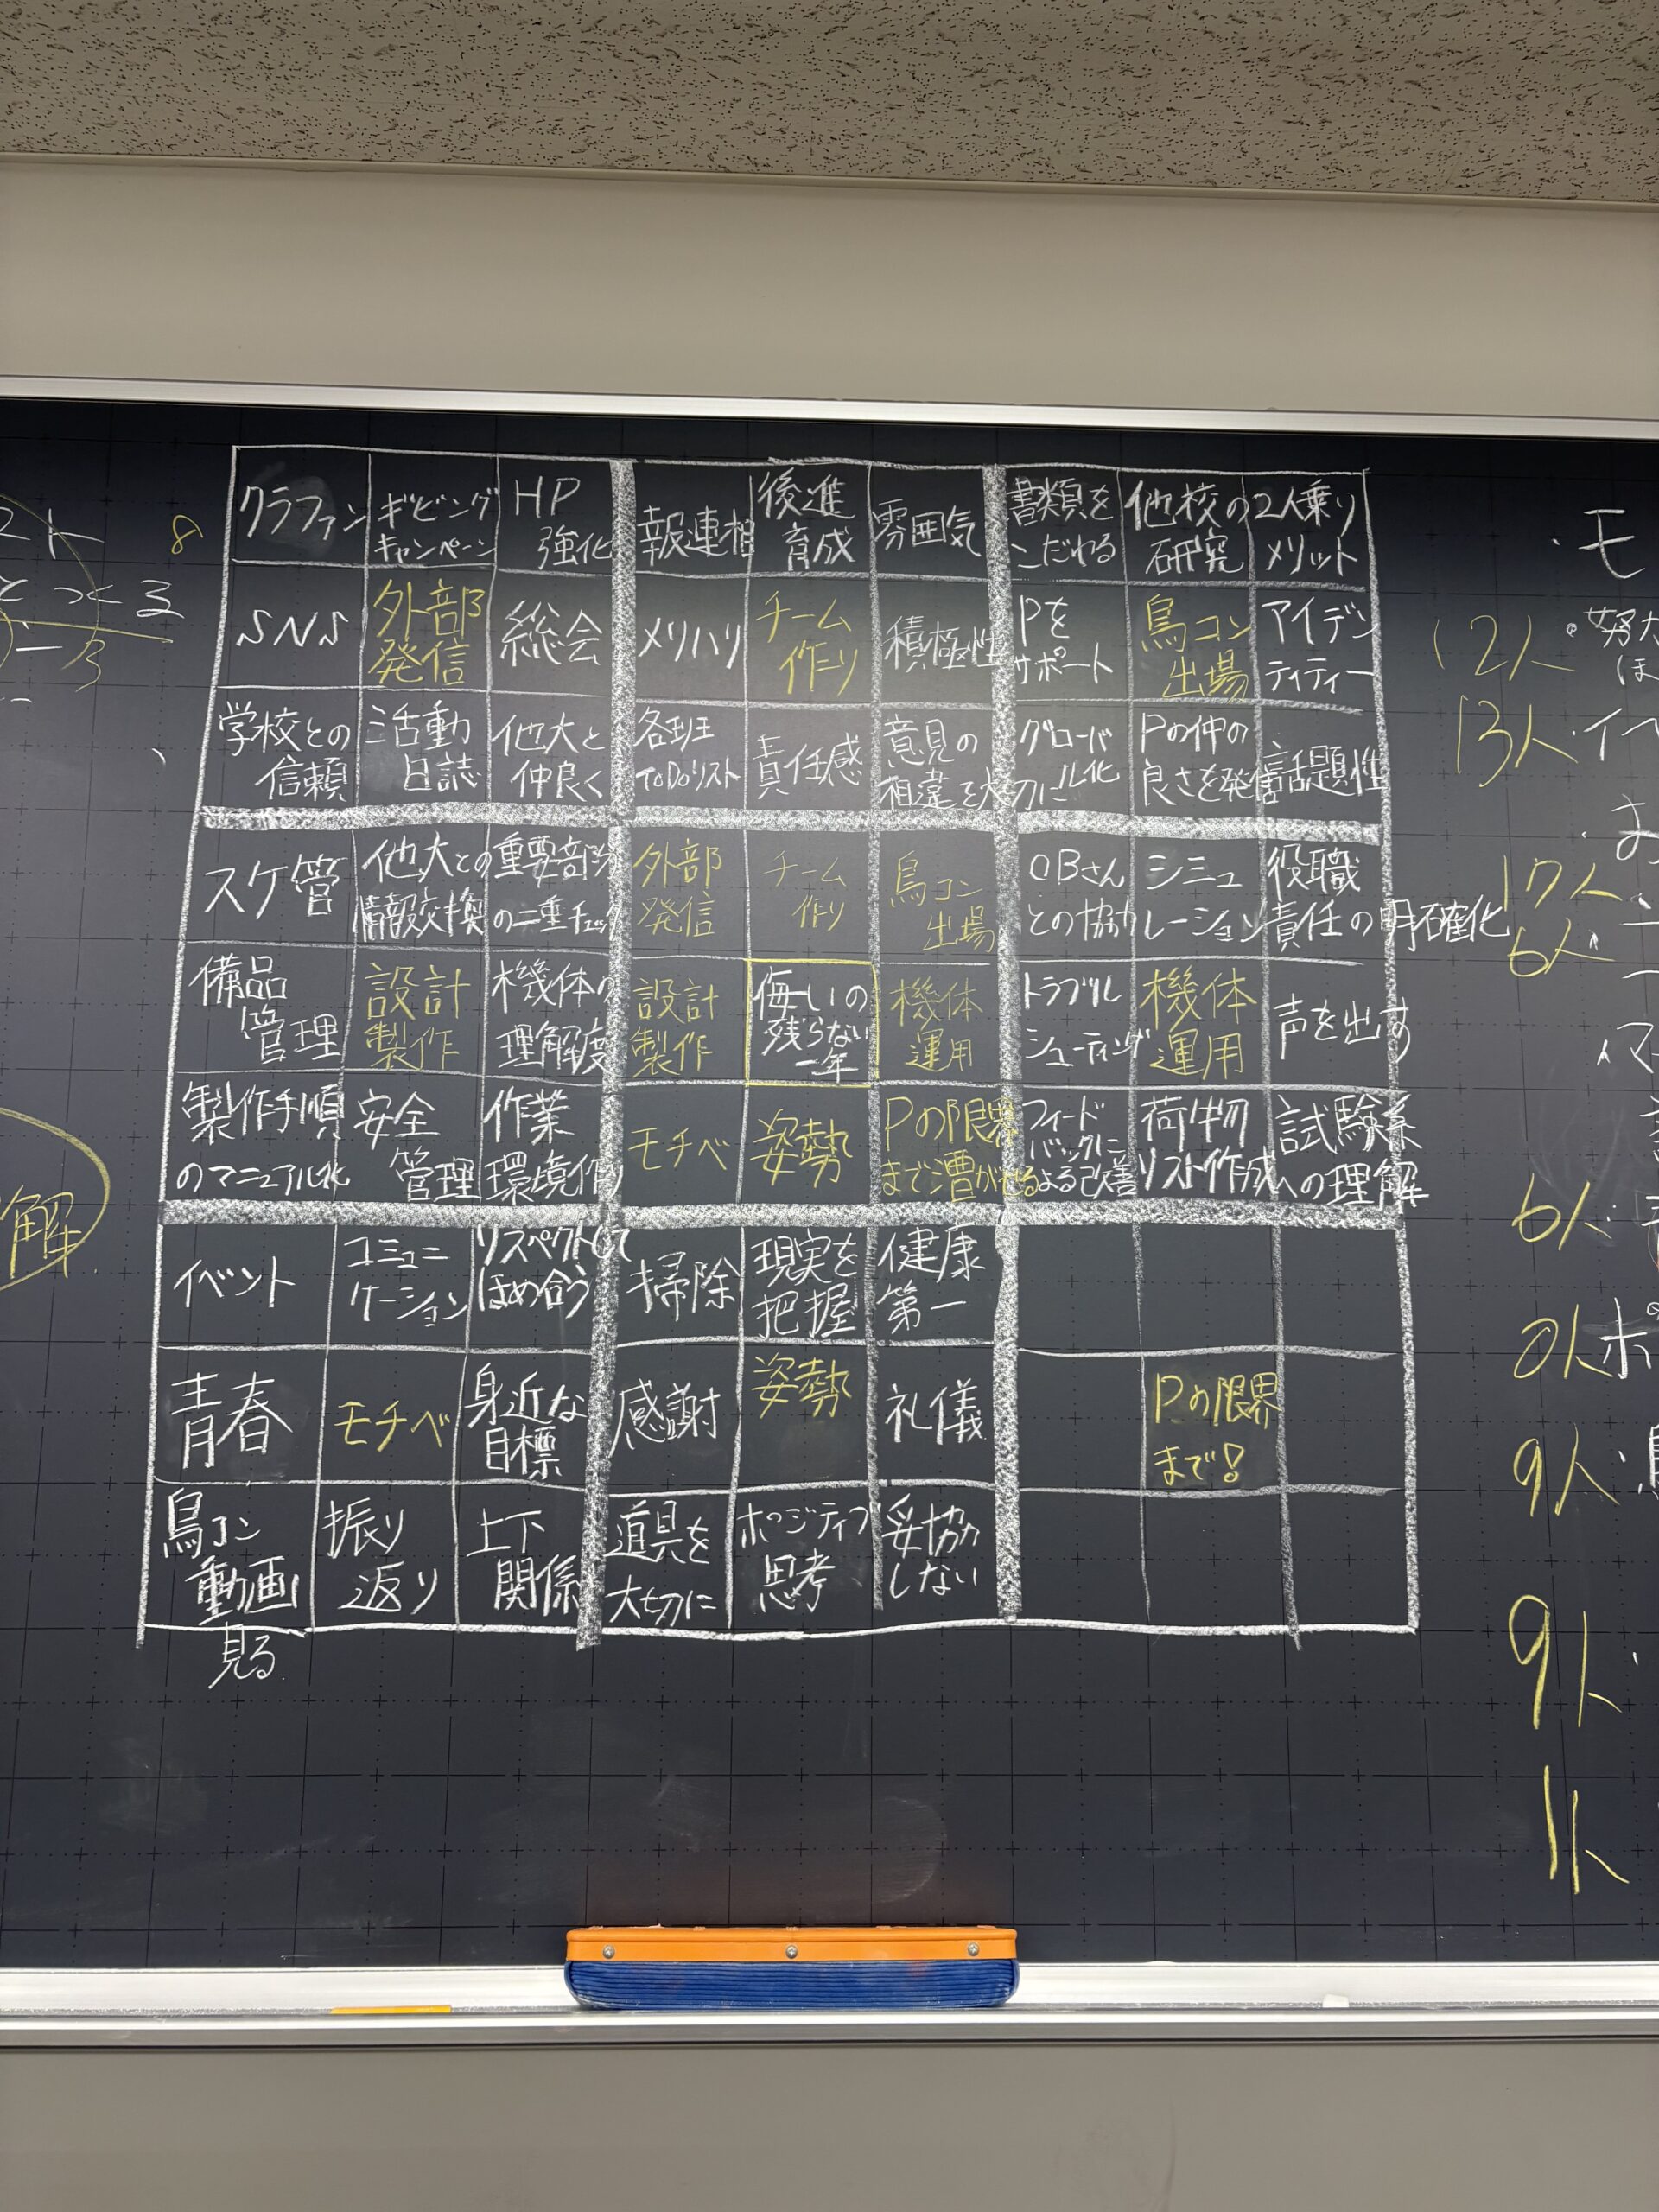 クラファン
ギビング
キャンペーン
HP
強化
報連相
後進
育成
雰囲気
書類を
こだわる
他校の
研究
2人乗り
メリット
SNS
外部
発信
総会
メリハリ
チーム
作り
積極性
Pを
サポート
鳥コン
出場
アイデン
ティティー
学校との
信頼
活動
日誌
他大と
仲良く
各班
ToDoリスト
責任感
意見の
相違を大切に
グローバ
ル化
Pの仲の
良さを発信
話題性
スケ管
他大との
情報交換
重要部分
の二重チェック
外部
発信
チーム
作り
鳥コン
出場
OBさん
との協力
シミュ
レーション
役職
責任の明確化
備品
管理
設計
製作
機体の
理解度
設計
製作
悔いの
残らない
一年
機体
運用
トラブル
シューティング
機体
運用
声を出す
製作手順
のマニュアル化
安全
管理
作業
環境作り
モチベ
姿勢
Pの限界
まで漕がせる
フィード
バックに
よる改善
荷物
リスト作成
試験系
への理解
イベント
コミュニ
ケーション
リスペクトして
ほめ合う
掃除
現実を
把握
健康
第一
青春
モチベ
身近な
目標
感謝
姿勢
礼儀
Pの限界
まで!
鳥コン
動画
見る
振り
返り
上下
関係
道具を
大切に
ポジティブ
思考
妥協
しない
8
解
モ
12人
13人
17人
6人
6人
0人
9人
9人
1人